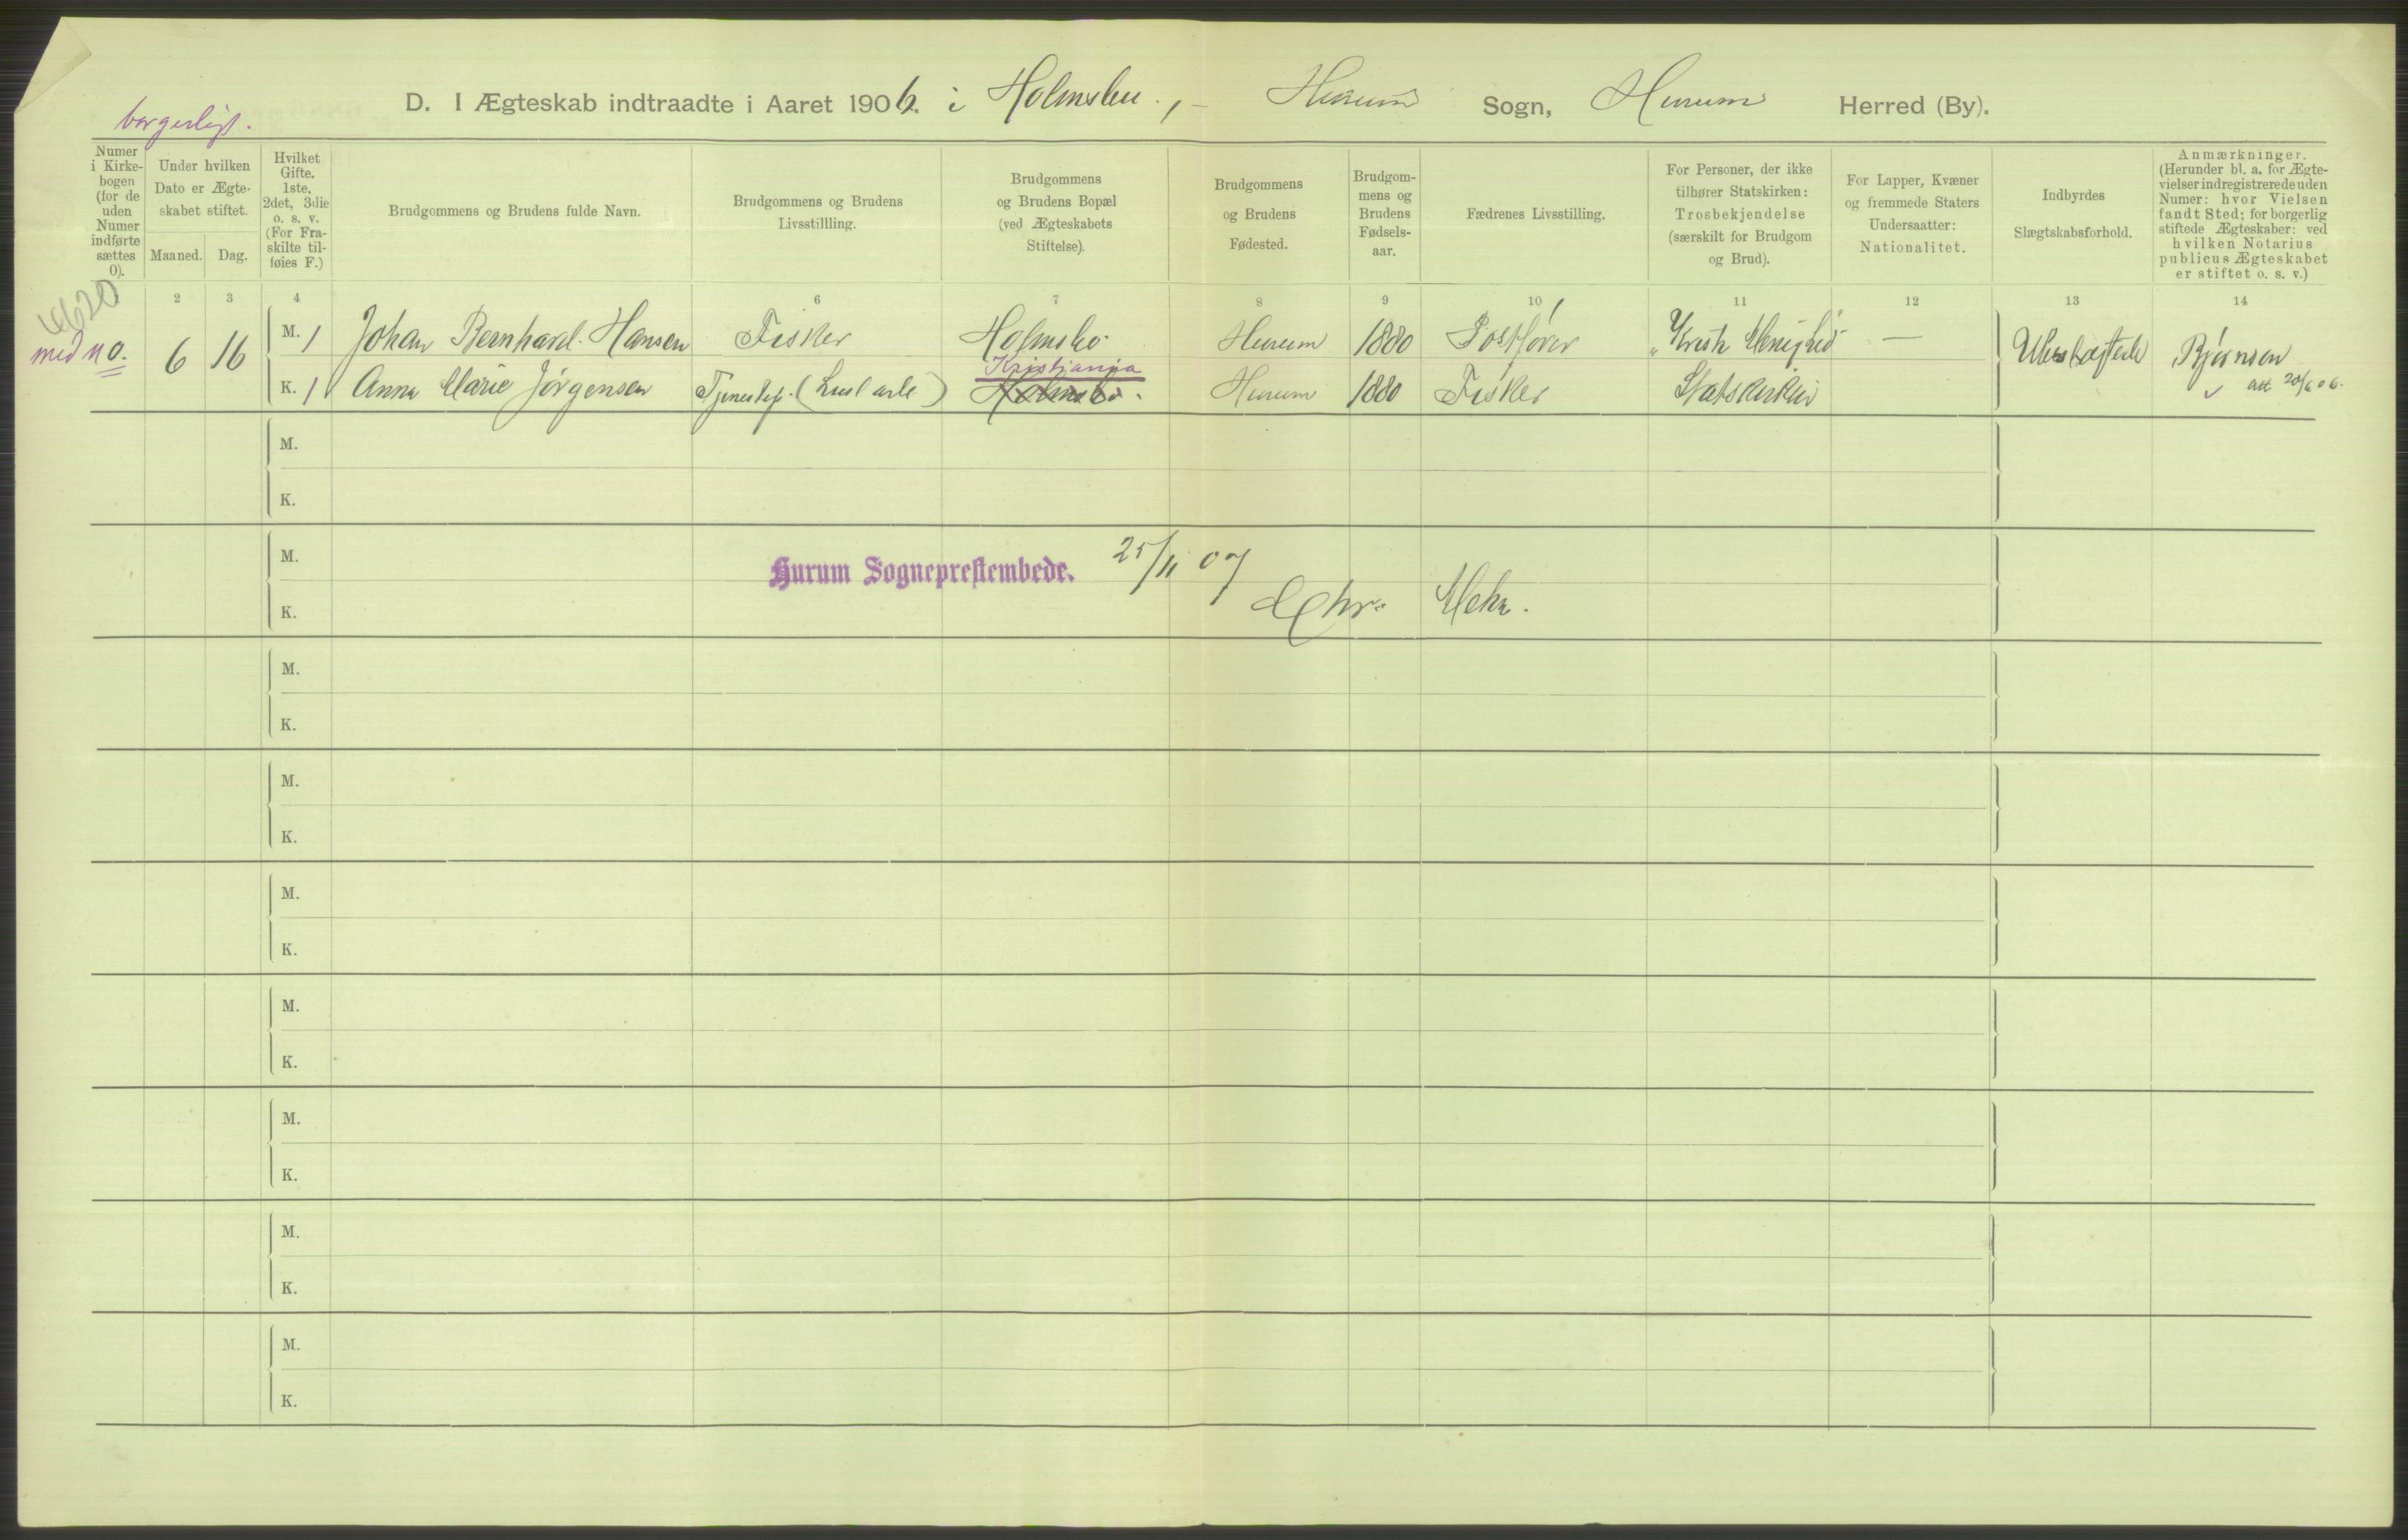 borgerligt.
D. I Ægteskab indtraadte i Aaret 1906. i Holmsbu., - Hurum Sogn, Hurum Herred (By).
Numer i Kirkebogen (for de uden Numer indførte sættes 0).
Under hvilken Dato er Ægteskabet stiftet.
Maaned. Dag.
Hvilket Gifte. 1ste, 2det, 3die o. s. v. (For Fraskilte tilføies F.)
Brudgommens og Brudens fulde Navn.
Brudgommens og Brudens Livsstillling.
Brudgommens og Brudens Bopæl (ved Ægteskabets Stiftelse).
Brudgommens og Brudens Fødested.
Brudgommens og Brudens Fødselsaar.
Fædrenes Livsstilling.
For Personer, der ikke tilhører Statskirken: Trosbekjendelse (særskilt for Brudgom og Brud).
For Lapper, Kvæner og fremmede Staters Undersaatter: Nationalitet.
Indbyrdes Slægtskabsforhold.
Anmærkninger. (Herunder bl. a. for Ægtevielser indregistrerede uden Numer: hvor Vielsen fandt Sted; for borgerlig stiftede Ægteskaber: ved hvilken Notarius publicus Ægteskabet er stiftet o. s. v.)
2 3 4 6 7 8 9 10 11 12 13 14
4620
med no. 6 16
M. 1 Johan Bernhard Hansen Fisker Holmsbo. Hurum 1880 Postfører Krist. Menighed — Ubeslægtede Bjørnsen
Kristiania
K. 1 Anna Marie Jørgensen Holmsbo. Hurum 1880 Fisker Statskirken att 20/6 06.
M.
K.
M.
Hurum Sogneprestembede. 25/11 07
K.
Chr.
M.
K.
M.
K.
M.
K.
M.
K.
M.
K.
M.
K.
M.
K.